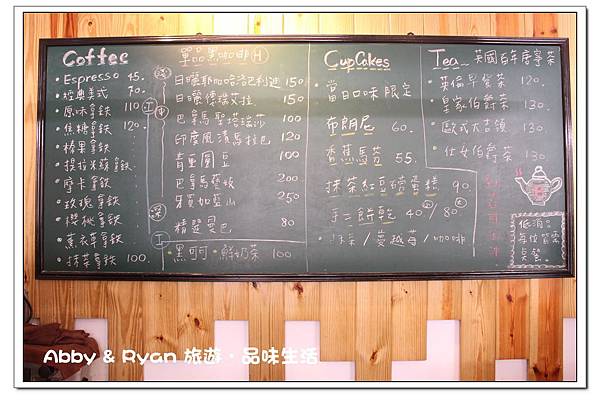 Coffee
Espresso 45.
經典美式 70.
原味拿鐵 110
焦糖拿鐵 120.
榛果拿鐵
提拉米蘇拿鐵
摩卡拿鐵
玫瑰拿鐵
櫻桃拿鐵
薰衣草拿鐵
抹茶拿鐵 100.
單品黑咖啡 H
淺
日曬耶加哈洛巴利迪 150
日曬德瑞艾拉 150
中
巴拿馬聖塔瑞莎 100
印度風漬馬拉巴 120
青蜜圓豆 100
巴拿馬藝妓 200
牙買加藍山 250
深
精選曼巴 80
黑可可・鮮奶茶 100
CupCakes
當日口味限定
布朗尼 60.
香蕉馬芬 55.
抹茶紅豆磅蛋糕 90.
手工餅乾 40/80
抹茶/蔓越莓/咖啡
Tea 英國百年唐寧茶
英倫早餐茶 120.
皇家伯爵茶 130.
歐式大吉嶺 130.
仕女伯爵茶 130
低消:
每位皆需
點餐.
Abby & Ryan 旅遊・品味生活